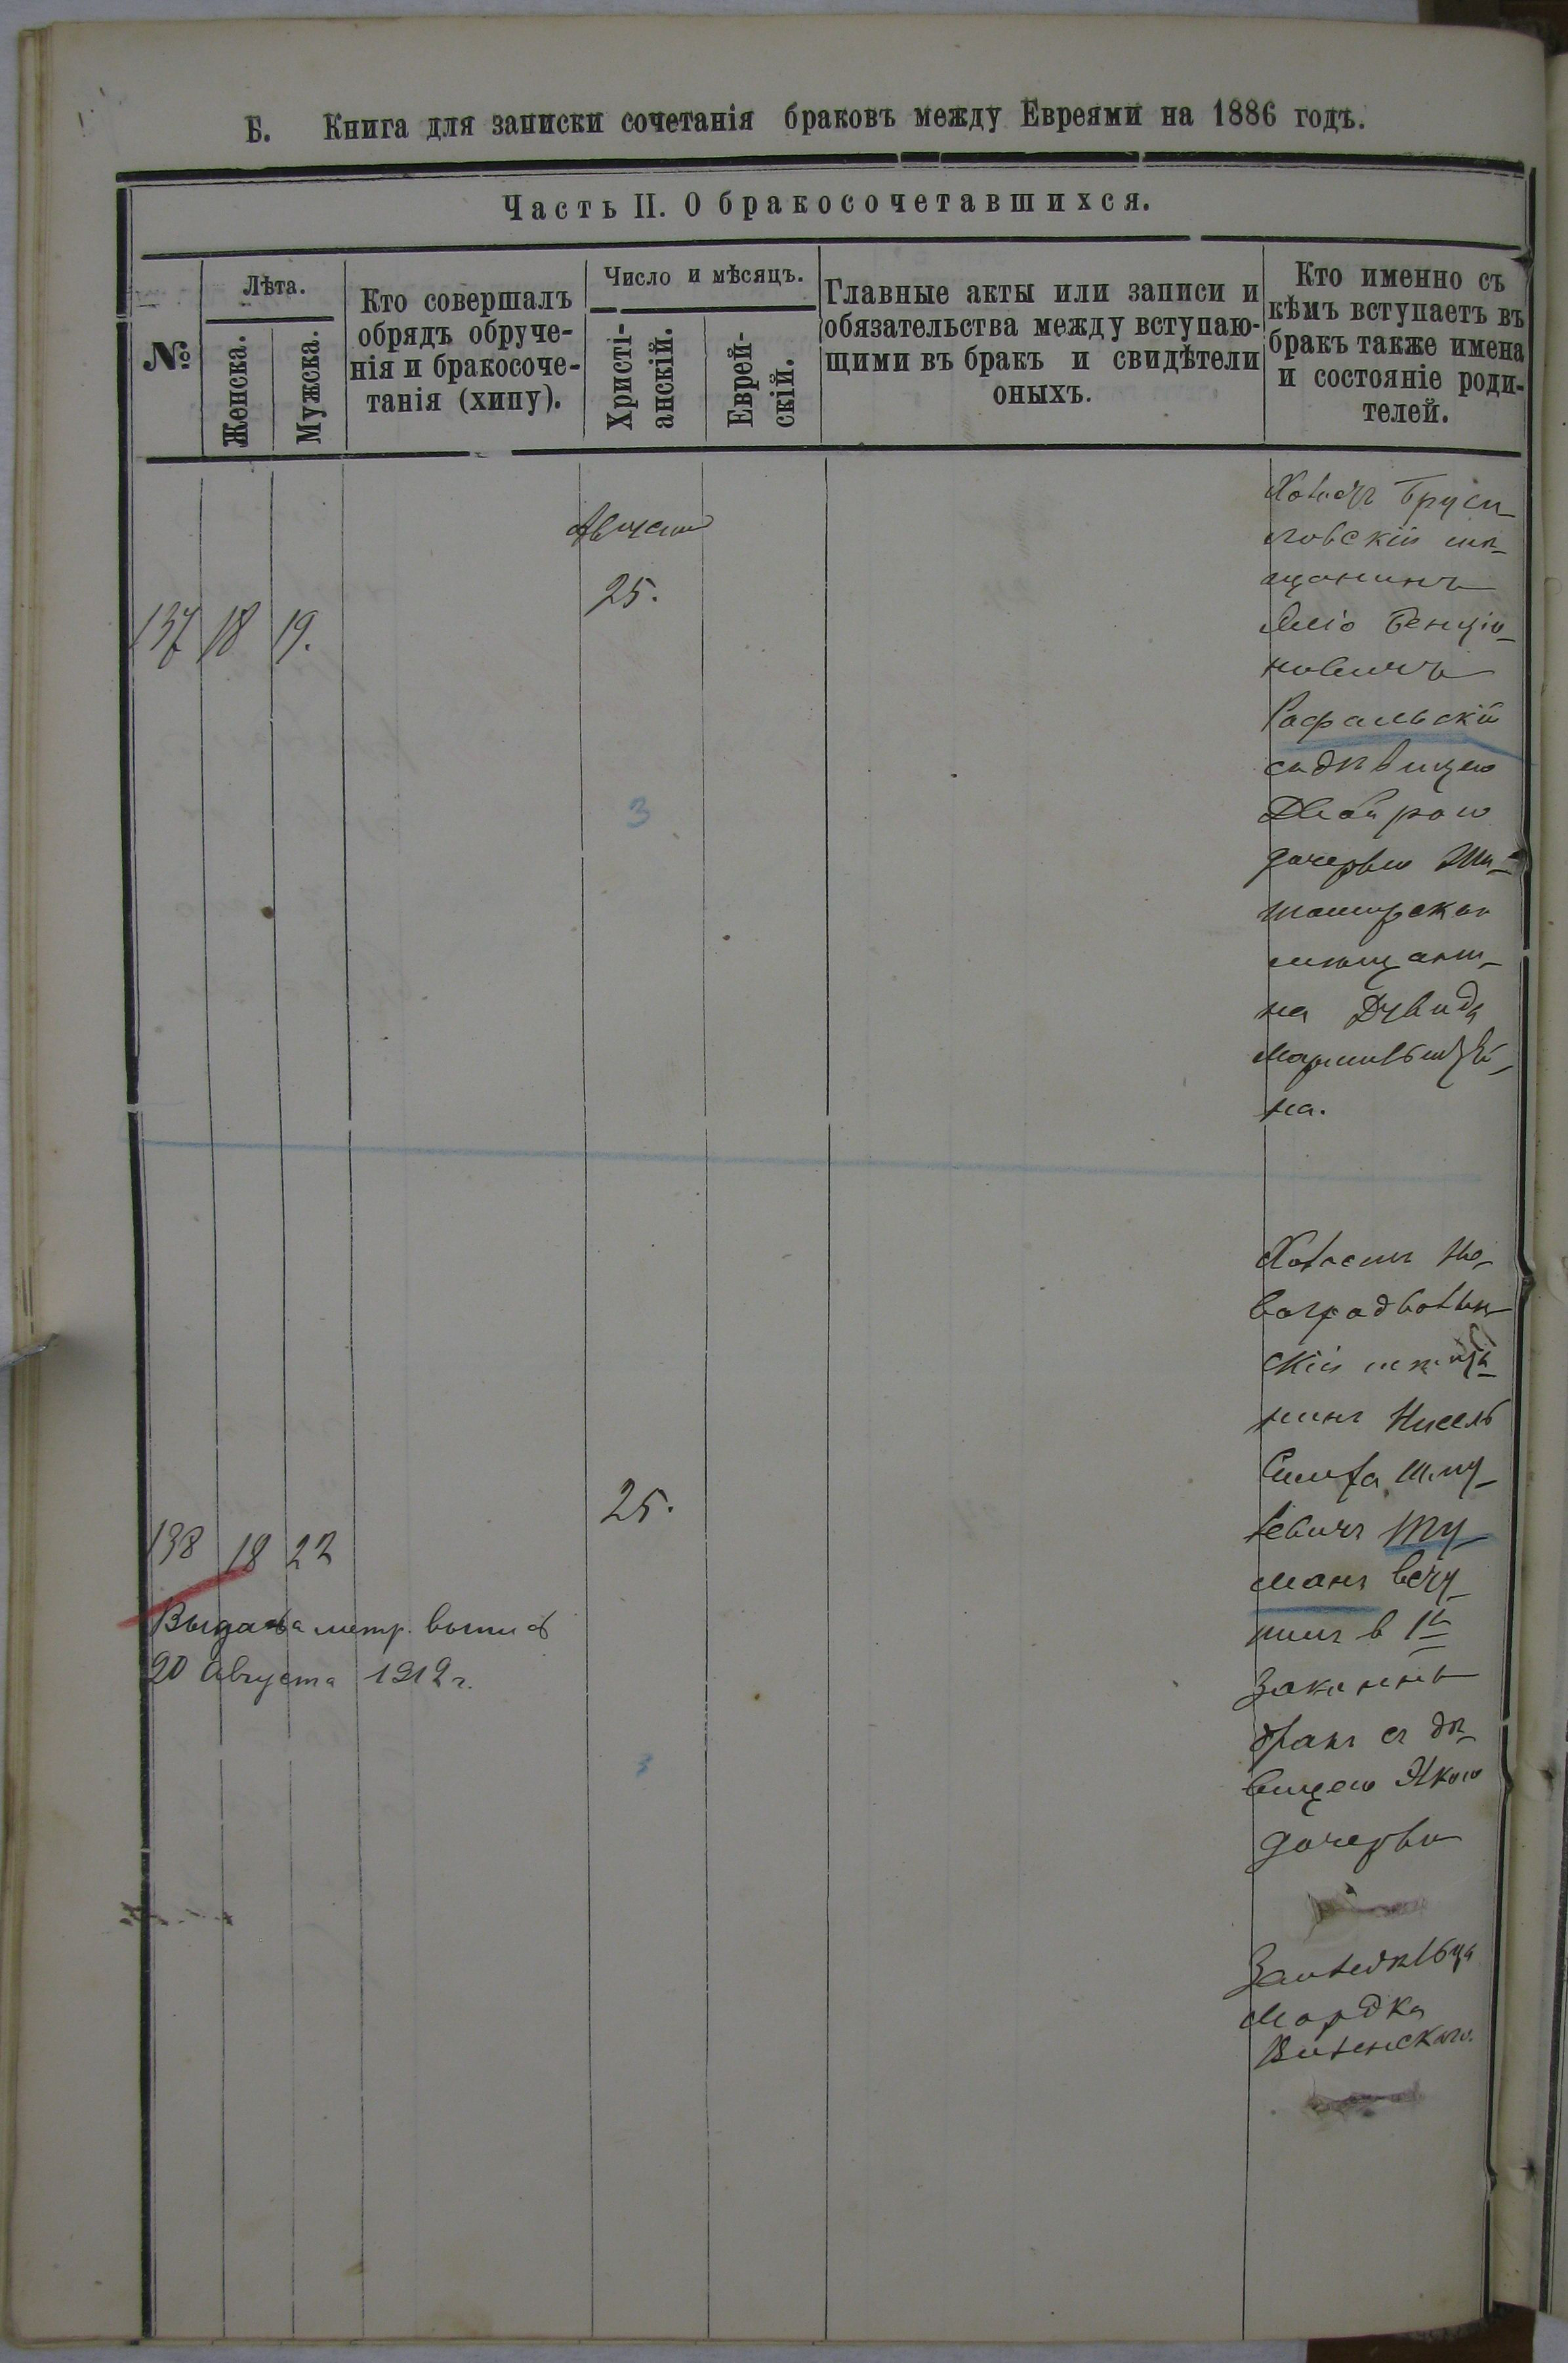 Б. Книга для записки сочетанія браковъ между Евреями на 1886 годъ.
Часть II. О бракосочетавшихся.
№
Лѣта.
Женска.
Мужска.
Кто совершалъ
обрядъ обруче-
нія и бракосоче-
танія (хипу).
Число и мѣсяцъ.
Христі-
анскій.
Еврей-
скій.
Главные акты или записи и
обязательства между вступаю-
щими въ бракъ и свидѣтели
оныхъ.
Кто именно съ
кѣмъ вступаетъ въ
бракъ также имена
и состояніе роди-
телей.
137 18 19.
Августа
25.
3
Бруси-
ловскій мѣ-
щанинъ
Бенціо-
новичъ
Рафальскій
съ дѣвицею
Двойрою
дочерью Жи-
томирскаго
мѣщани-
на Дувида
на.
138 18 22
25.
3
Выдана метр. выпись
20 Августа 1912 г.
Холостъ Но-
воградволын-
скій мѣща-
нинъ Нисель
Симха Шму-
левичъ Ту-
манъ всту-
пилъ в 1й
законный
бракъ съ дѣ-
вицею
дочерью
Землевладѣльца
Мордка
Виленскаго.